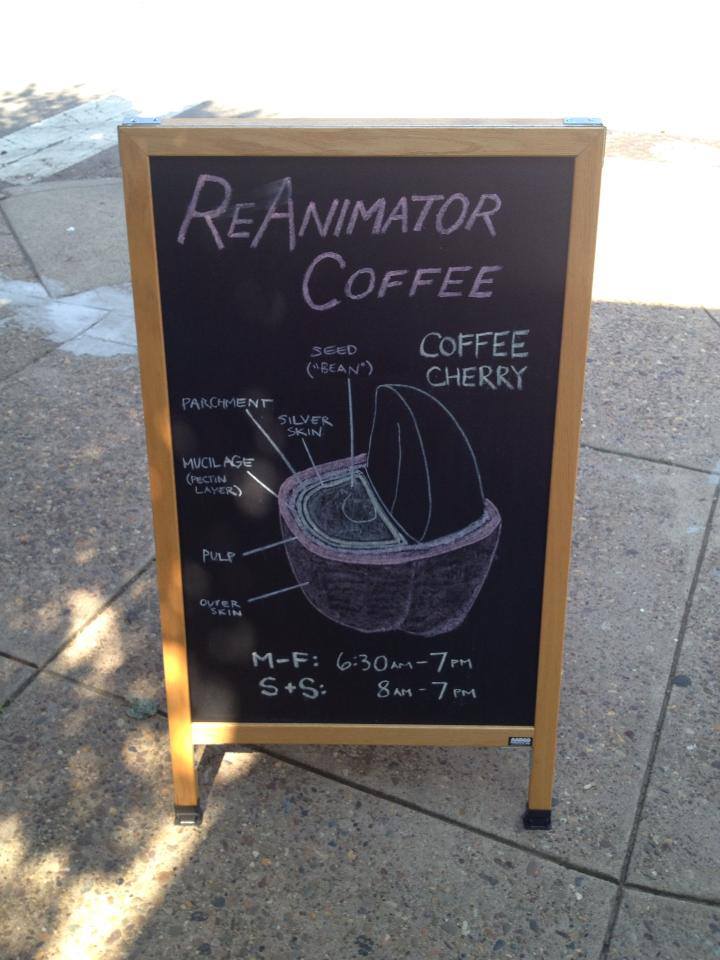 REANIMATOR
COFFEE
COFFEE
CHERRY
SEED
("BEAN")
PARCHMENT
SILVER
SKIN
MUCILAGE
(PECTIN
LAYER)
PULP
OUTER
SKIN
M-F: 6:30AM-7PM
S+S: 8AM-7PM